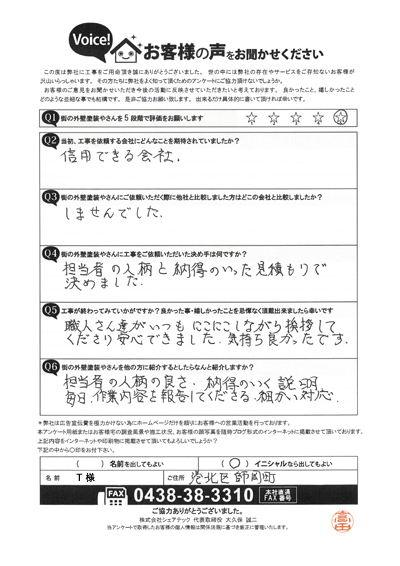 Voice!
お客様の声をお聞かせください
この度は弊社に工事をご用命頂き誠にありがとうございました。 世の中には弊社の存在やサービスをご存知ないお客様が
沢山いらっしゃいます。 その方たちに弊社をよく知って頂くためのアンケートにご協力頂けないでしょうか。
お客様のご意見をお聞かせいただき今後の活動に反映させていただきたいと考えております。 良かったこと、嬉しかったこと
どのような些細な事でも結構です。 是非ご協力お願い致します。 出来るだけ具体的に書いて頂ければ幸いです。
Q1 街の外壁塗装やさんを5段階で評価をお願いします
Q2 当初、工事を依頼する会社にどんなことを期待されていましたか?
信用できる会社.
Q3 街の外壁塗装やさんにご依頼いただく際に他社と比較しました方はどこの会社と比較しましたか?
しませんでした.
Q4 街の外壁塗装やさんに工事をご依頼いただいた決め手は何ですか?
担当者の人柄と納得のいった見積もりで
決めました.
Q5 工事が終わってみていかがですか?良かった事・嬉しかったことを忌憚なく頂戴出来ましたら幸いです
職人さん達がいつもにこにこしながら挨拶して
くださり安心できました. 気持ち良かったです.
Q6 街の外壁塗装やさんを他の方に紹介するとしたらなんと紹介しますか?
担当者の人柄の良さ. 納得のいく説明
毎日.作業内容を報告してくださる.細かい対応.
※弊社は広告宣伝費を極力かけない為にホームページだけを頼りにお客様への営業活動を行っております。
本アンケート用紙またはお客様宅の調査風景や施工状況、お客様の顔写真を随時ブログ形式のインターネットに掲載させて頂いております。
上記内容をインターネットや印刷物に掲載させて頂いてもよろしいでしょうか?
下記の中から○印をお付け下さい。
( ) 名前を出してもよい ( ○ ) イニシャルなら出してもよい
名前 T様 ご住所 港北区師岡町
FAX 0438-38-3310 本社直通 FAX番号
ご協力ありがとうございました。
株式会社シェアテック 代表取締役 大久保 誠二
当アンケートで取得したお客様の個人情報は関係法規に基づき厳正に管理いたします。